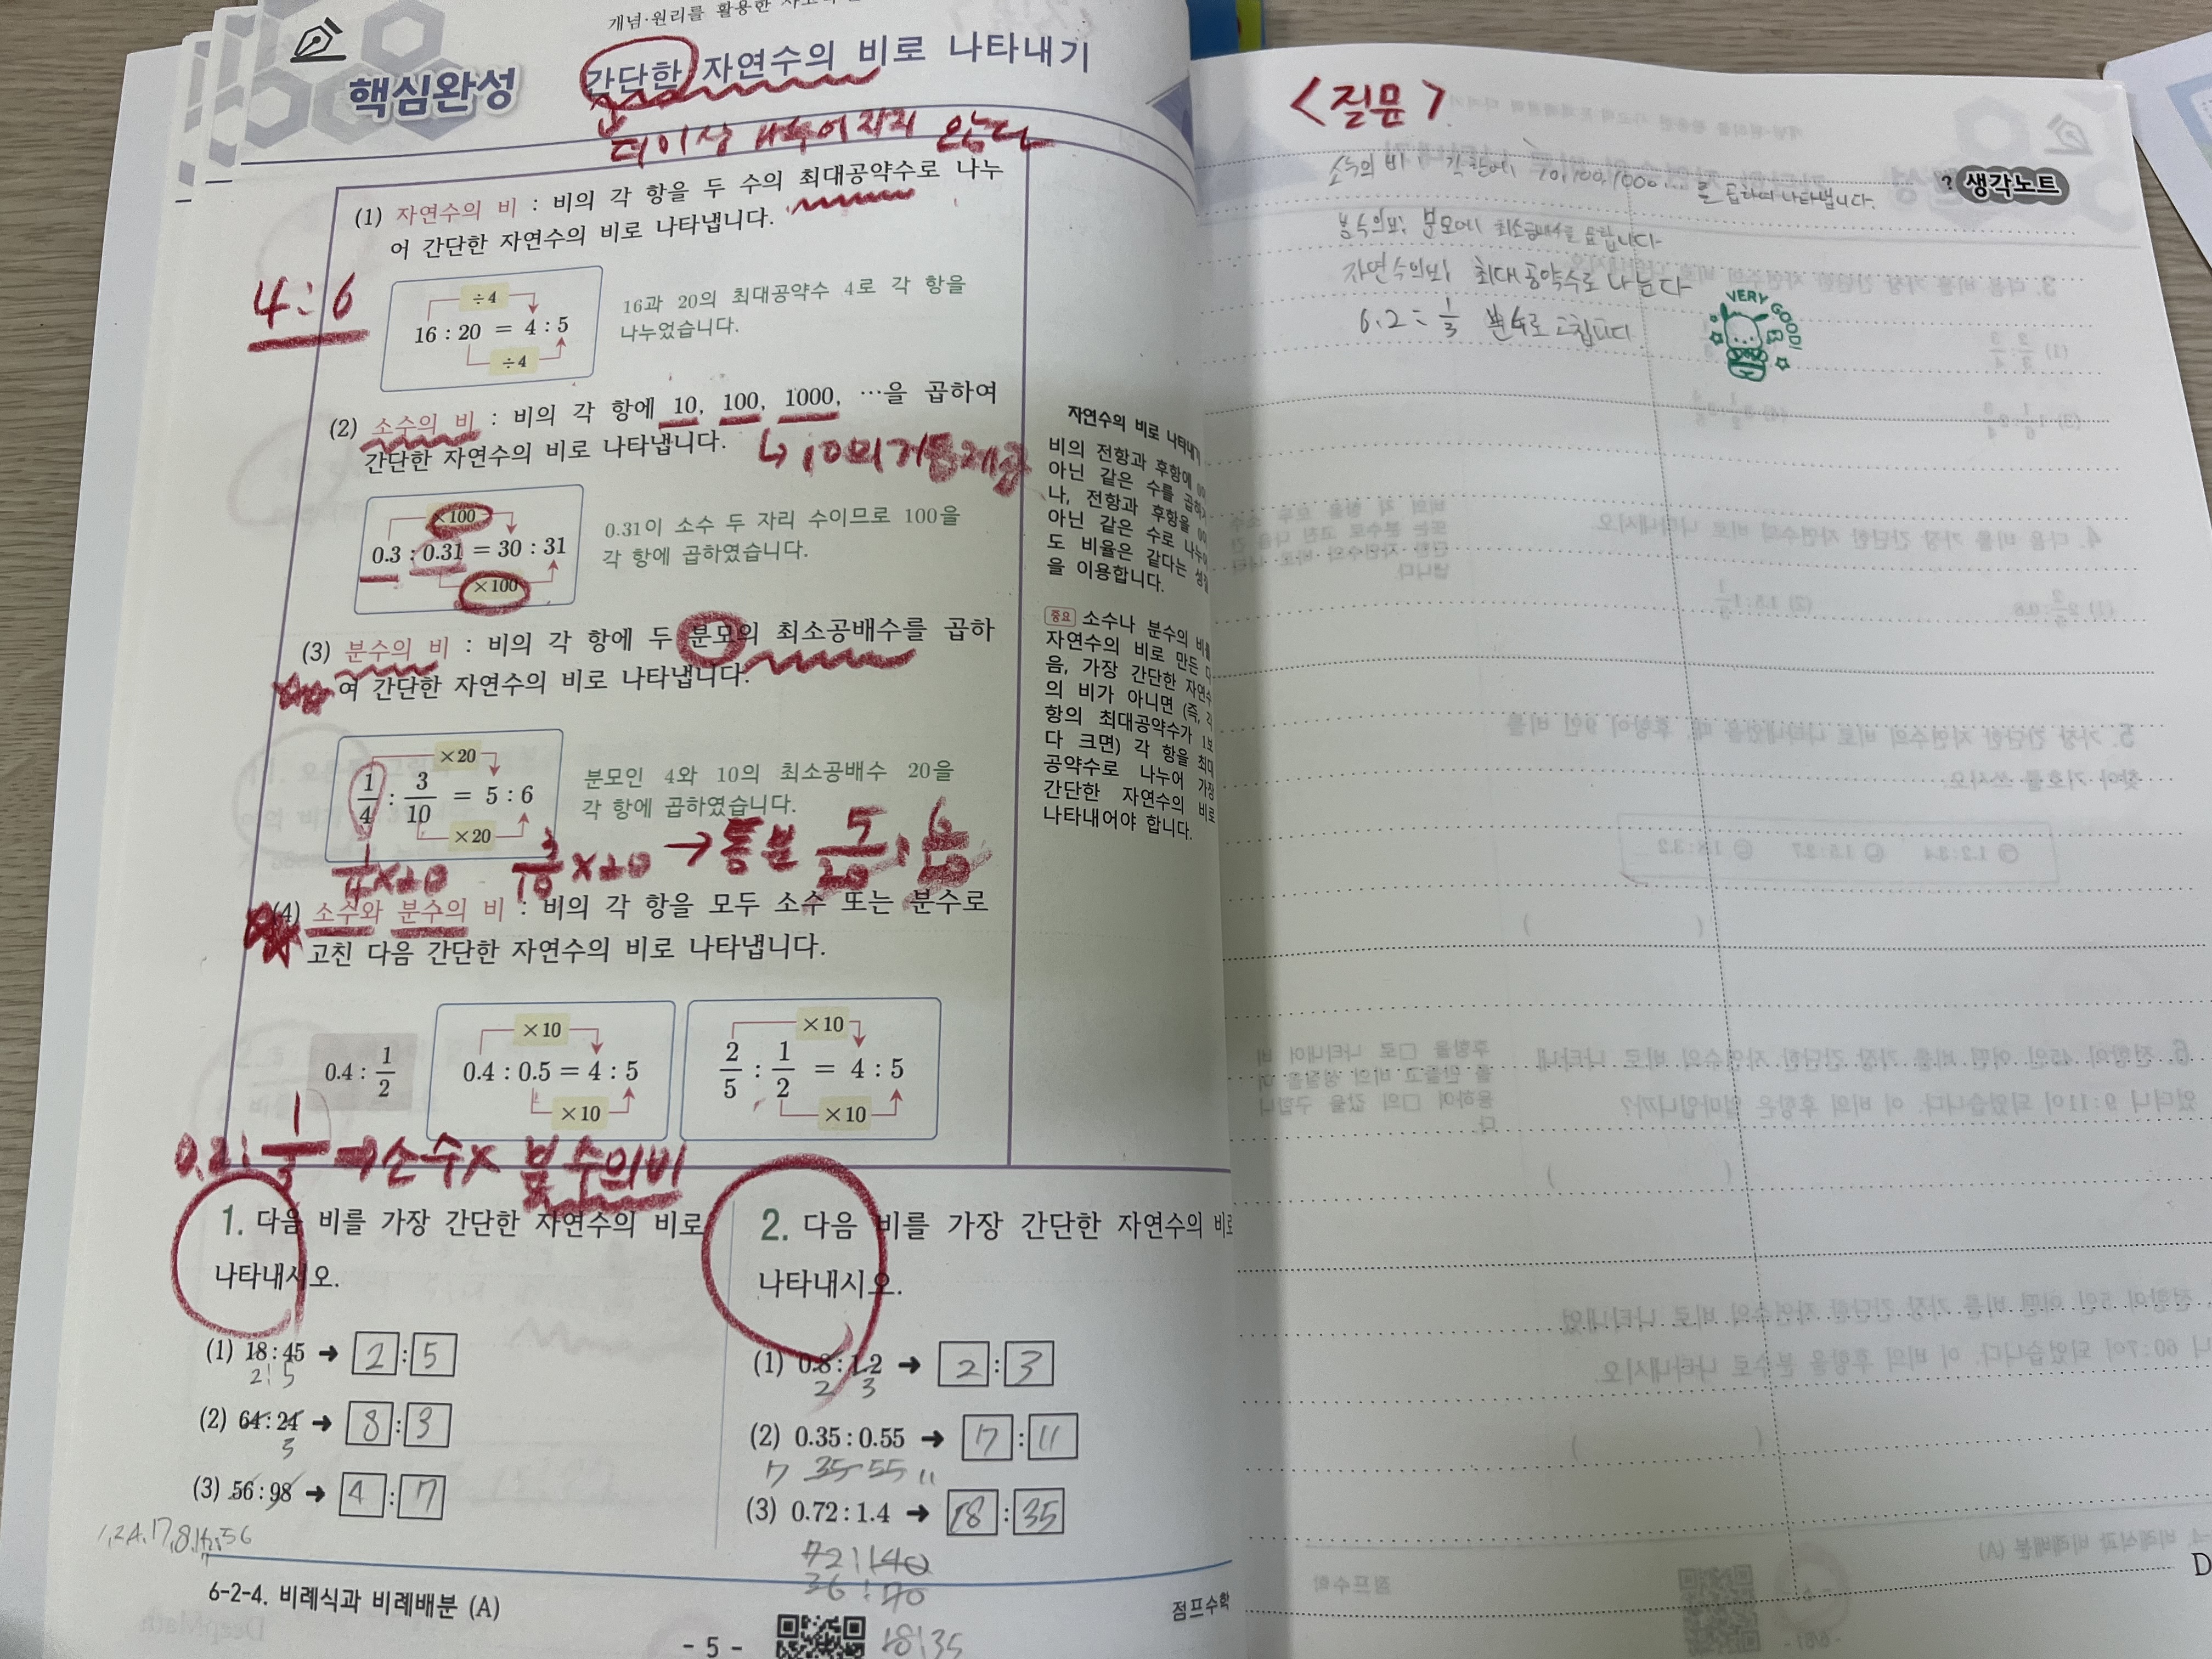 개념·원리를 활용한
핵심완성
간단한 자연수의 비로 나타내기
더이상 나누어지지 않는다
(1) 자연수의 비 : 비의 각 항을 두 수의 최대공약수로 나누
어 간단한 자연수의 비로 나타냅니다.
4:6
÷4
16 : 20 = 4 : 5
÷4
16과 20의 최대공약수 4로 각 항을
나누었습니다.
(2) 소수의 비 : 비의 각 항에 10, 100, 1000, …을 곱하여
간단한 자연수의 비로 나타냅니다.
↳ 10의 거듭제곱
×100
0.3 : 0.31 = 30 : 31
×100
0.31이 소수 두 자리 수이므로 100을
각 항에 곱하였습니다.
(3) 분수의 비 : 비의 각 항에 두 분모의 최소공배수를 곱하
여 간단한 자연수의 비로 나타냅니다.
×20
1/4 : 3/10 = 5 : 6
×20
분모인 4와 10의 최소공배수 20을
각 항에 곱하였습니다.
1/4×20 3/10×20 → 통분 5/20 : 6/20
(4) 소수와 분수의 비 : 비의 각 항을 모두 소수 또는 분수로
고친 다음 간단한 자연수의 비로 나타냅니다.
0.4 : 1/2
×10
0.4 : 0.5 = 4 : 5
×10
×10
2/5 : 1/2 = 4 : 5
×10
0.2 : 1/3 → 소수× 분수의비
자연수의 비로 나타내기
비의 전항과 후항에 0이
아닌 같은 수를 곱하거
나, 전항과 후항을 0이
아닌 같은 수로 나누어
도 비율은 같다는 성질
을 이용합니다.
중요 소수나 분수의 비를
자연수의 비로 만든 다
음, 가장 간단한 자연수
의 비가 아니면 (즉, 각
항의 최대공약수가 1보
다 크면) 각 항을 최대
공약수로 나누어 가장
간단한 자연수의 비로
나타내어야 합니다.
1. 다음 비를 가장 간단한 자연수의 비로
나타내시오.
(1) 18 : 45 → 2 : 5
2 : 5
(2) 64 : 24 → 8 : 3
3
(3) 56 : 98 → 4 : 7
2. 다음 비를 가장 간단한 자연수의 비로
나타내시오.
(1) 0.8 : 1.2 → 2 : 3
2 3
(2) 0.35 : 0.55 → 17 : 11
7 35 55 11
(3) 0.72 : 1.4 → 18 : 35
72:140
36:70
18:35
6-2-4. 비례식과 비례배분 (A)
- 5 -
점프수학
<질문>
? 생각노트
소수의 비 각 항에 10,100,1000... 를 곱하여 나타냅니다.
분수의비: 분모에 최소공배수를 곱합니다
자연수의비 최대공약수로 나눈다
0.2 : 1/3 분수로 고칩니다
VERY GOOD!